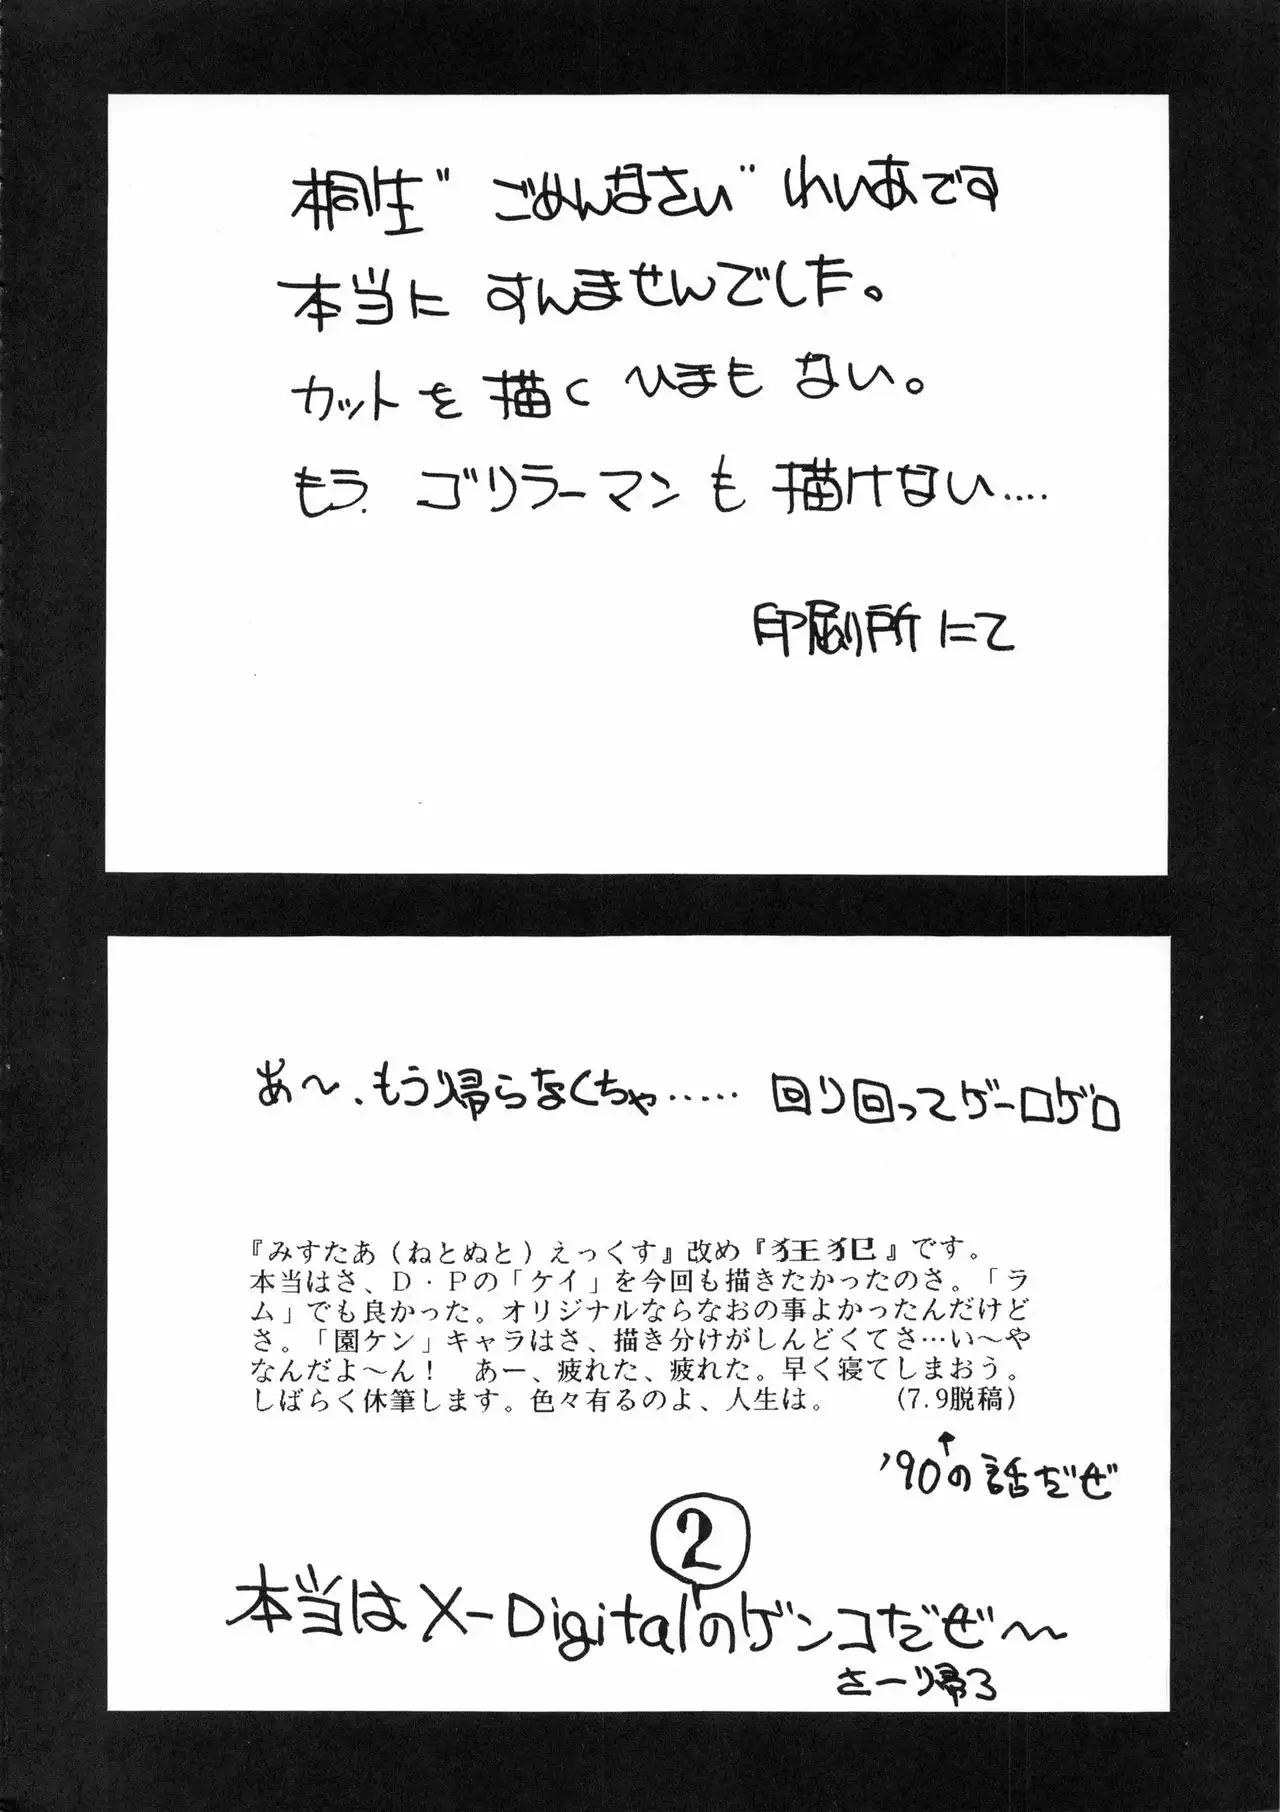 桐生“ごめんなさい”れいあです
本当にすんませんでした。
カットを描くひまもない。
もう.ゴリラーマンも描けない‥‥
印刷所にて
あ〜、もう帰らなくちゃ‥‥‥回り回ってゲーロゲロ
『みすたあ(ねとぬと)えっくす』改め『狂犯』です。
本当はさ、D・Pの「ケイ」を今回も描きたかったのさ。「ラ
ム」でも良かった。オリジナルならなおの事よかったんだけど
さ。「園ケン」キャラはさ、描き分けがしんどくてさ…い〜や
なんだよ〜ん！　あー、疲れた、疲れた。早く寝てしまおう。
しばらく休筆します。色々有るのよ、人生は。　(7.9脱稿)
↑
'90の話だぜ
2
本当はX-Digitalのゲンコだぜ〜
さーり帰ろ